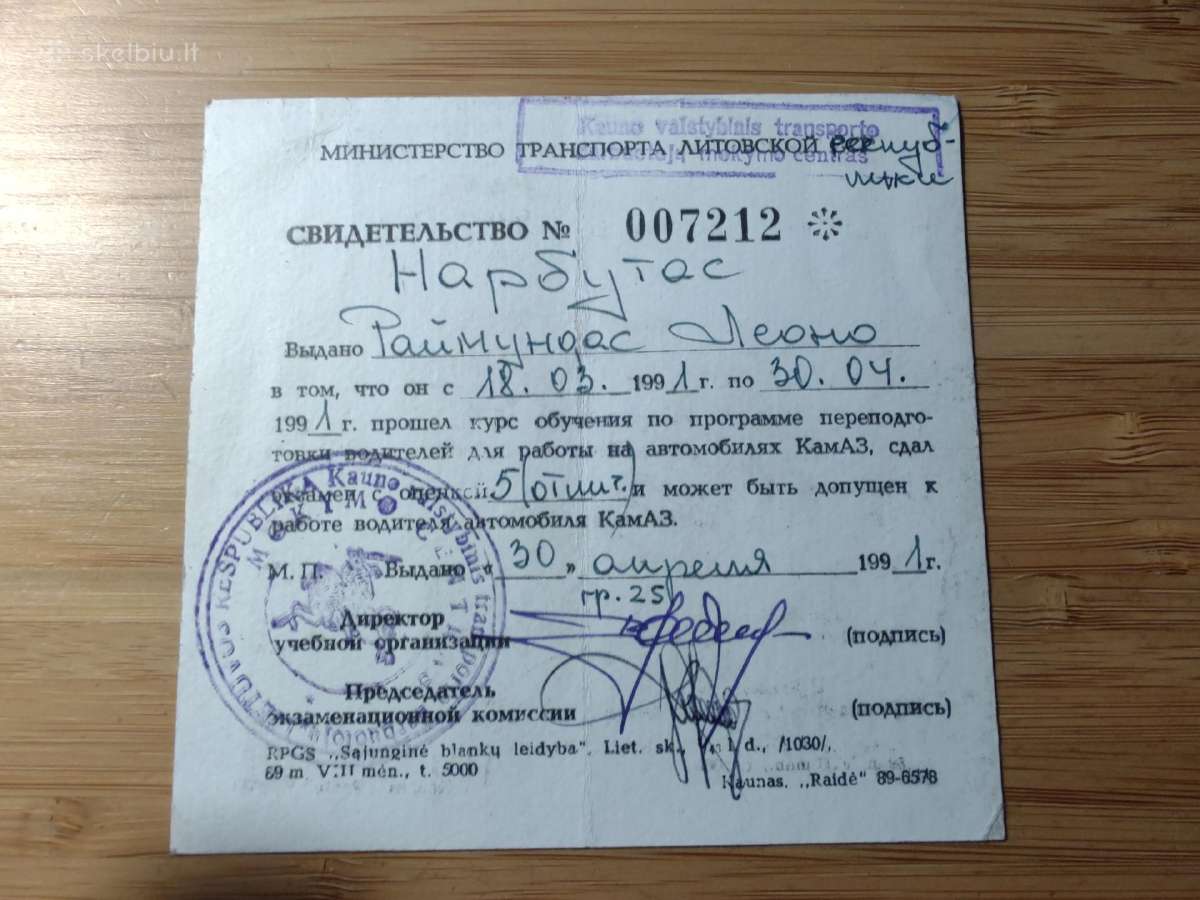 skelbiu.lt
Kauno valstybinis transporto
mokymo centras
МИНИСТЕРСТВО ТРАНСПОРТА ЛИТОВСКОЙ респуб-
лики
СВИДЕТЕЛЬСТВО № 007212
Нарбутас
Выдано Раймундас Леоно
в том, что он с 18. 03. 1991 г. по 30. 04.
1991 г. прошел курс обучения по программе переподго-
товки водителей для работы на автомобилях КамАЗ, сдал
экзамен с оценкой 5 (отлич.) и может быть допущен к
работе водителя автомобиля КамАЗ.
М. П. Выдано „30" апреля 1991 г.
гр. 25
Директор
учебной организации (подпись)
Председатель
экзаменационной комиссии (подпись)
RPGS „Sąjunginė blankų leidyba“, Liet. sk., d., /1030/,
89 m. VIII mėn., t. 5000
Kaunas, „Raidė“ 89-6578
LIETUVOS RESPUBLIKA Kauno valstybinis
MOKYMO CENTRAS